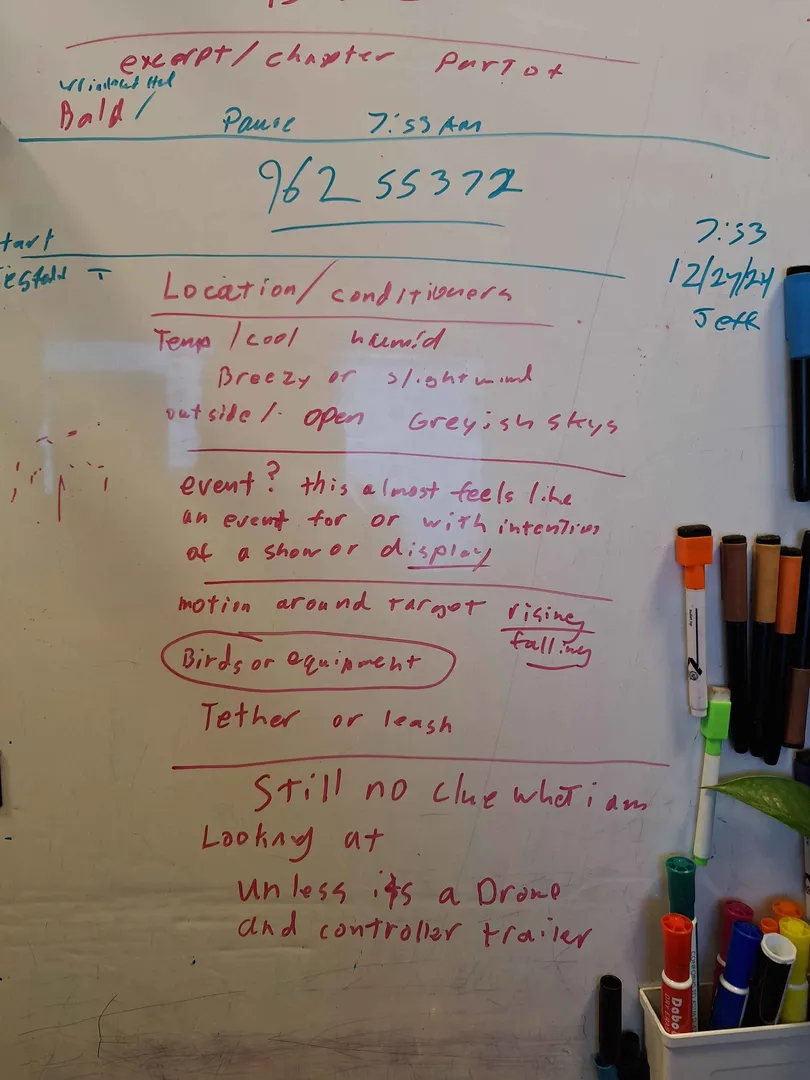 excerpt/chapter part of
Bald/ Pause 7:53 AM
962 55372
tart
7:53
12/24/24
Jeff
Location/conditioners
Temp/cool humid
Breezy or slight wind
outside/. open Greyish skys
event? this almost feels like
an event for or with intention
of a show or display
motion around target rising
falling
Birds or equipment
Tether or leash
Still no clue what i am
Looking at
unless it's a Drone
and controller trailer